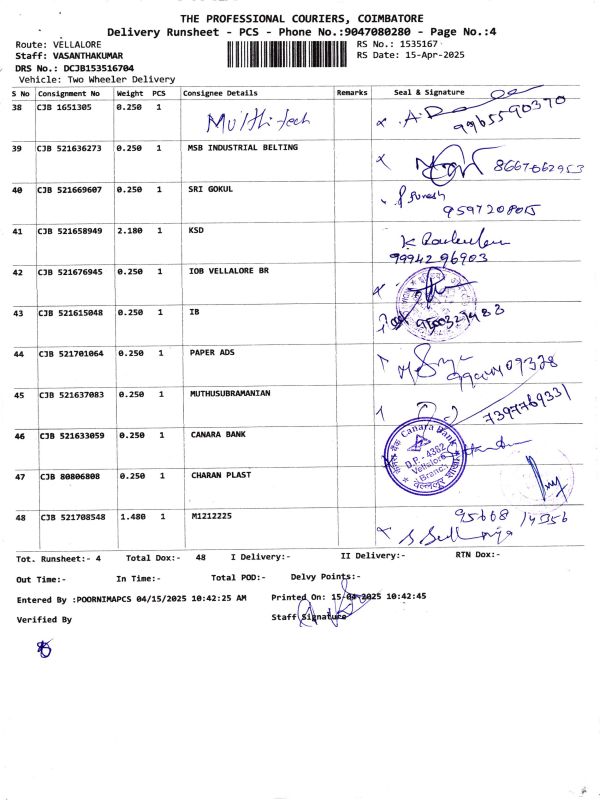 THE PROFESSIONAL COURIERS, COIMBATORE
Delivery Runsheet - PCS - Phone No.:9047080280 - Page No.:4
Route: VELLALORE RS No.: 1535167
Staff: VASANTHAKUMAR RS Date: 15-Apr-2025
DRS No.: DCJB153516704
Vehicle: Two Wheeler Delivery
S No Consignment No Weight PCS Consignee Details Remarks Seal & Signature
38 CJB 1651305 0.250 1 Multi tech 9965590370
39 CJB 521636273 0.250 1 MSB INDUSTRIAL BELTING 8667062953
40 CJB 521669607 0.250 1 SRI GOKUL
41 CJB 521658949 2.180 1 KSD
9994296903
42 CJB 521676945 0.250 1 IOB VELLALORE BR
43 CJB 521615048 0.250 1 IB
44 CJB 521701064 0.250 1 PAPER ADS
45 CJB 521637083 0.250 1 MUTHUSUBRAMANIAN 7397769331
46 CJB 521633059 0.250 1 CANARA BANK Canara Bank
D.P.- 4382
Vellalore
Branch
47 CJB 80806808 0.250 1 CHARAN PLAST
48 CJB 521708548 1.480 1 M1212225
Tot. Runsheet:- 4 Total Dox:- 48 I Delivery:- II Delivery:- RTN Dox:-
Out Time:- In Time:- Total POD:- Delvy Points:-
Entered By :POORNIMAPCS 04/15/2025 10:42:25 AM Printed On: 15-04-2025 10:42:45
Verified By Staff Signature